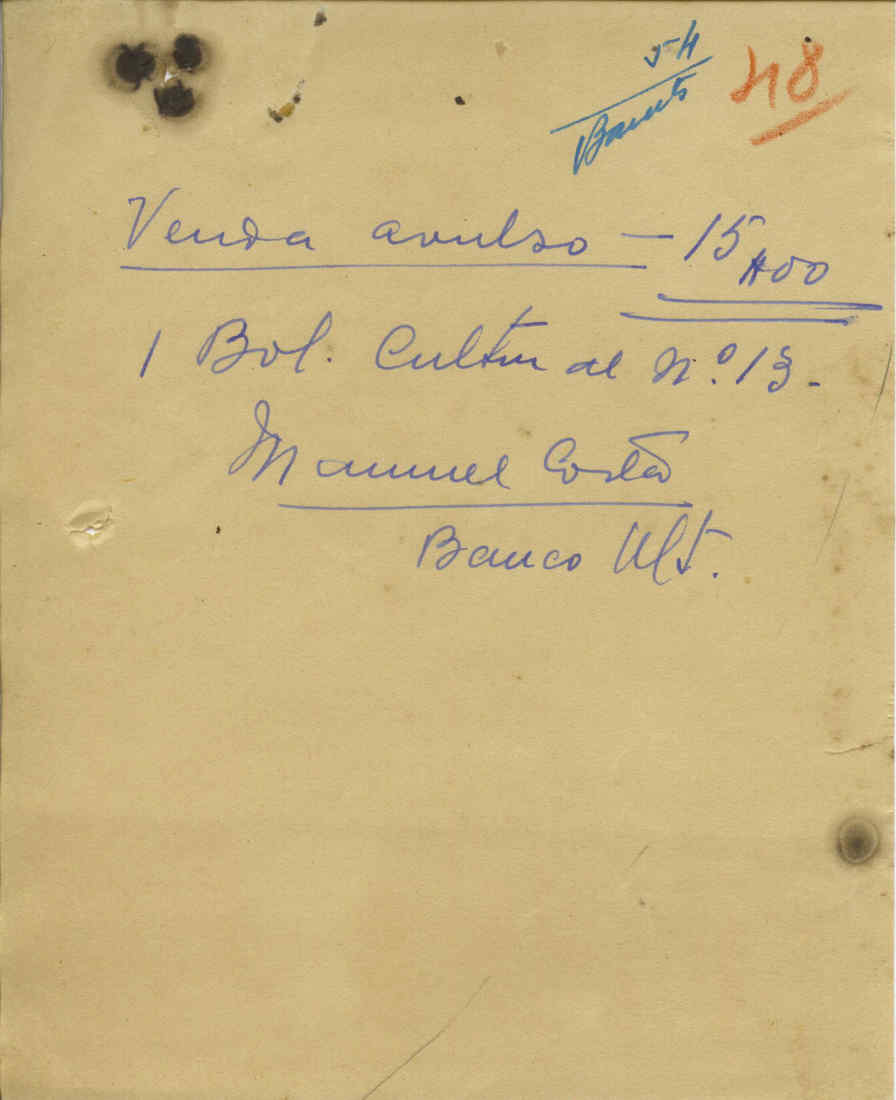 5-4
48
Venda avulso — 15$00
1 Bol. Cultural Nº. 13-
Manuel Costa
Banco Ult.